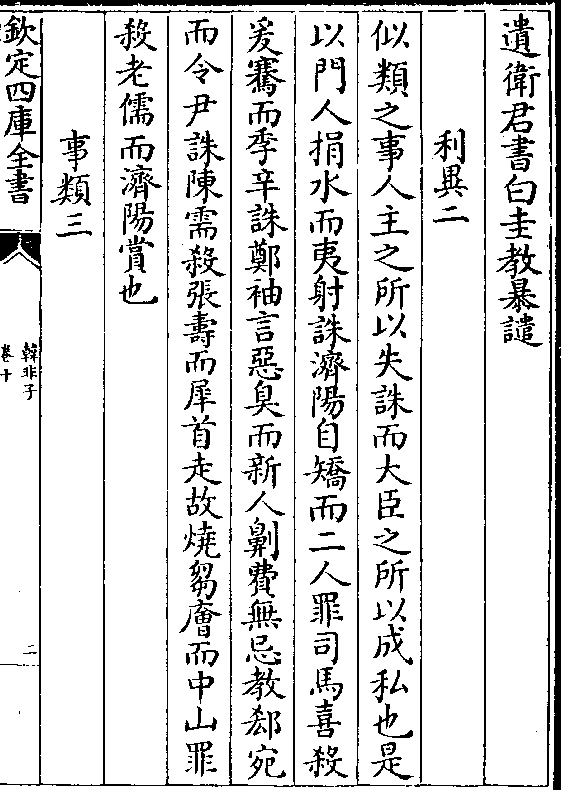 遺衛君書白圭教暴譴
利異二
似類之事人主之所以失誅而大臣之所以成私也是
以門人捐水而夷射誅濟陽自矯而二人罪司馬喜殺
爰騫而季辛誅鄭袖言惡臭而新人劓費無忌教郄宛
而令尹誅陳需殺張壽而犀首走故燒芻廥而中山罪
殺老儒而濟陽賞也
事類三
欽定四庫全書
韓非子
卷十
二